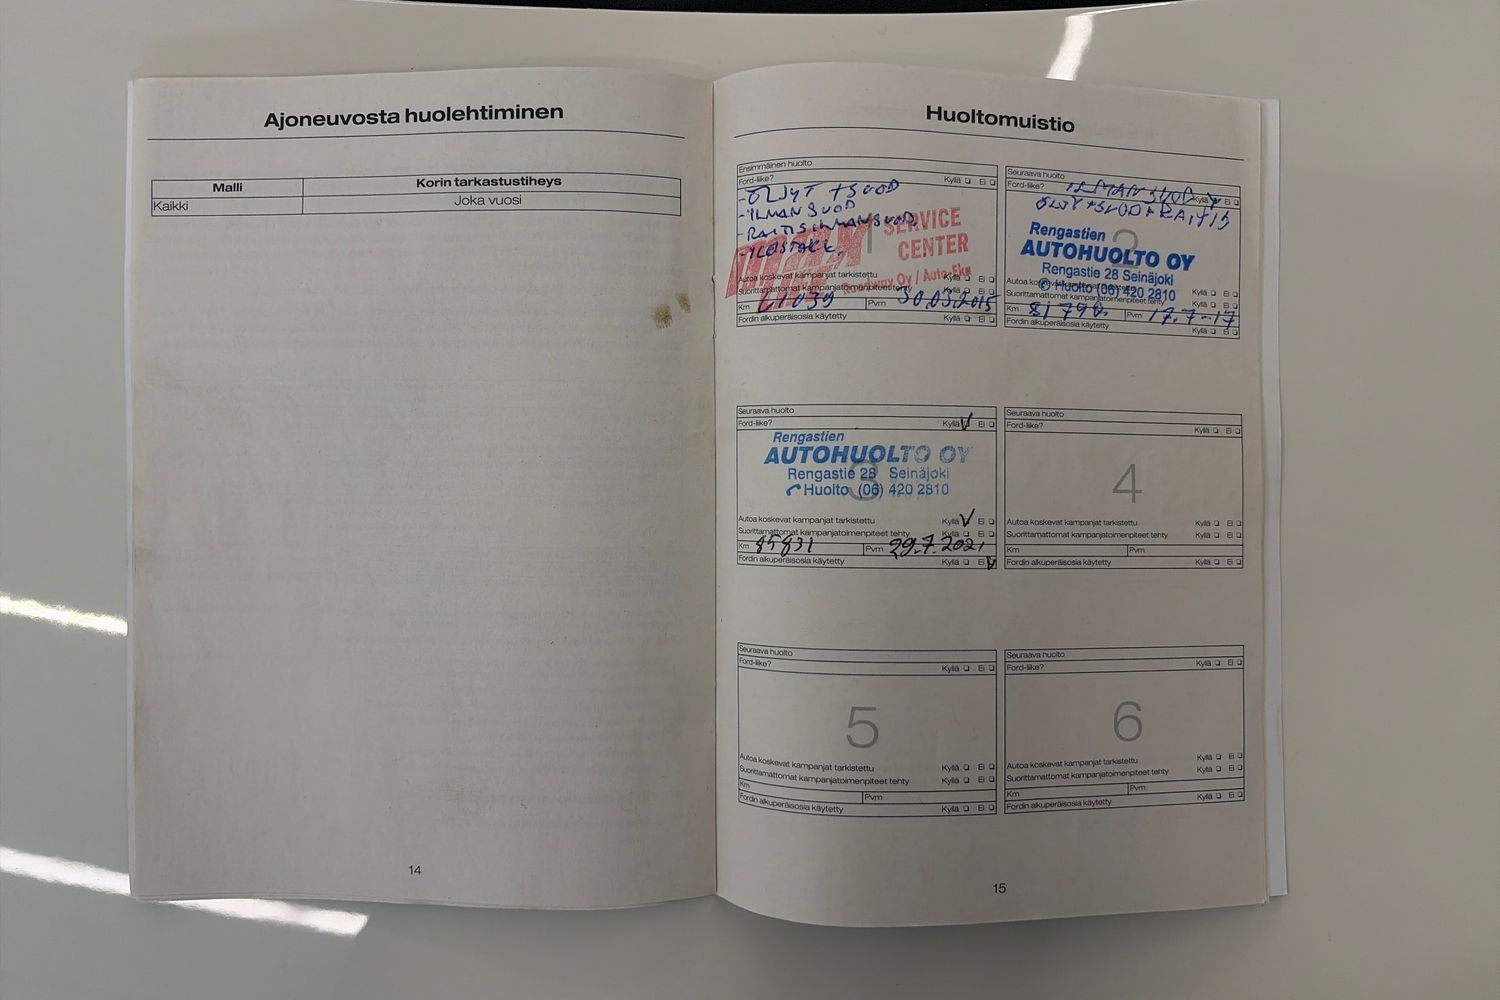 Ajoneuvosta huolehtiminen
Malli Korin tarkastustiheys
Kaikki Joka vuosi
14
Huoltomuistio
Ensimmäinen huolto
Ford-liike? Kyllä Ei
-ÖLJYT +SUOD
-ILMANSUOD
-RAITISILMANSUOD.
-YLEISTARK.
1
SERVICE
CENTER
Roadway Oy / Auto-Eke
Autoa koskevat kampanjat tarkistettu Kyllä Ei
Suorittamattomat kampanjatoimenpiteet tehty Kyllä Ei
Km 61039 Pvm 30.03.2015
Fordin alkuperäisosia käytetty Kyllä Ei
Seuraava huolto
Ford-liike? ILMANSUOD Kyllä Ei
2
Rengastien
AUTOHUOLTO OY
Rengastie 28 Seinäjoki
Huolto (06) 420 2810
Autoa koskevat kampanjat tarkistettu Kyllä Ei
Suorittamattomat kampanjatoimenpiteet tehty Kyllä Ei
Km Pvm 17.7-17
Fordin alkuperäisosia käytetty Kyllä Ei
Seuraava huolto
Ford-liike? Kyllä Ei
3
Rengastien
AUTOHUOLTO OY
Rengastie 28 Seinäjoki
Huolto (06) 420 2810
Autoa koskevat kampanjat tarkistettu Kyllä Ei
Suorittamattomat kampanjatoimenpiteet tehty Kyllä Ei
Km 85831 Pvm 29.7.2021
Fordin alkuperäisosia käytetty Kyllä Ei
Seuraava huolto
Ford-liike? Kyllä Ei
4
Autoa koskevat kampanjat tarkistettu Kyllä Ei
Suorittamattomat kampanjatoimenpiteet tehty Kyllä Ei
Km Pvm
Fordin alkuperäisosia käytetty Kyllä Ei
Seuraava huolto
Ford-liike? Kyllä Ei
5
Autoa koskevat kampanjat tarkistettu Kyllä Ei
Suorittamattomat kampanjatoimenpiteet tehty Kyllä Ei
Km Pvm
Fordin alkuperäisosia käytetty Kyllä Ei
Seuraava huolto
Ford-liike? Kyllä Ei
6
Autoa koskevat kampanjat tarkistettu Kyllä Ei
Suorittamattomat kampanjatoimenpiteet tehty Kyllä Ei
Km Pvm
Fordin alkuperäisosia käytetty Kyllä Ei
15